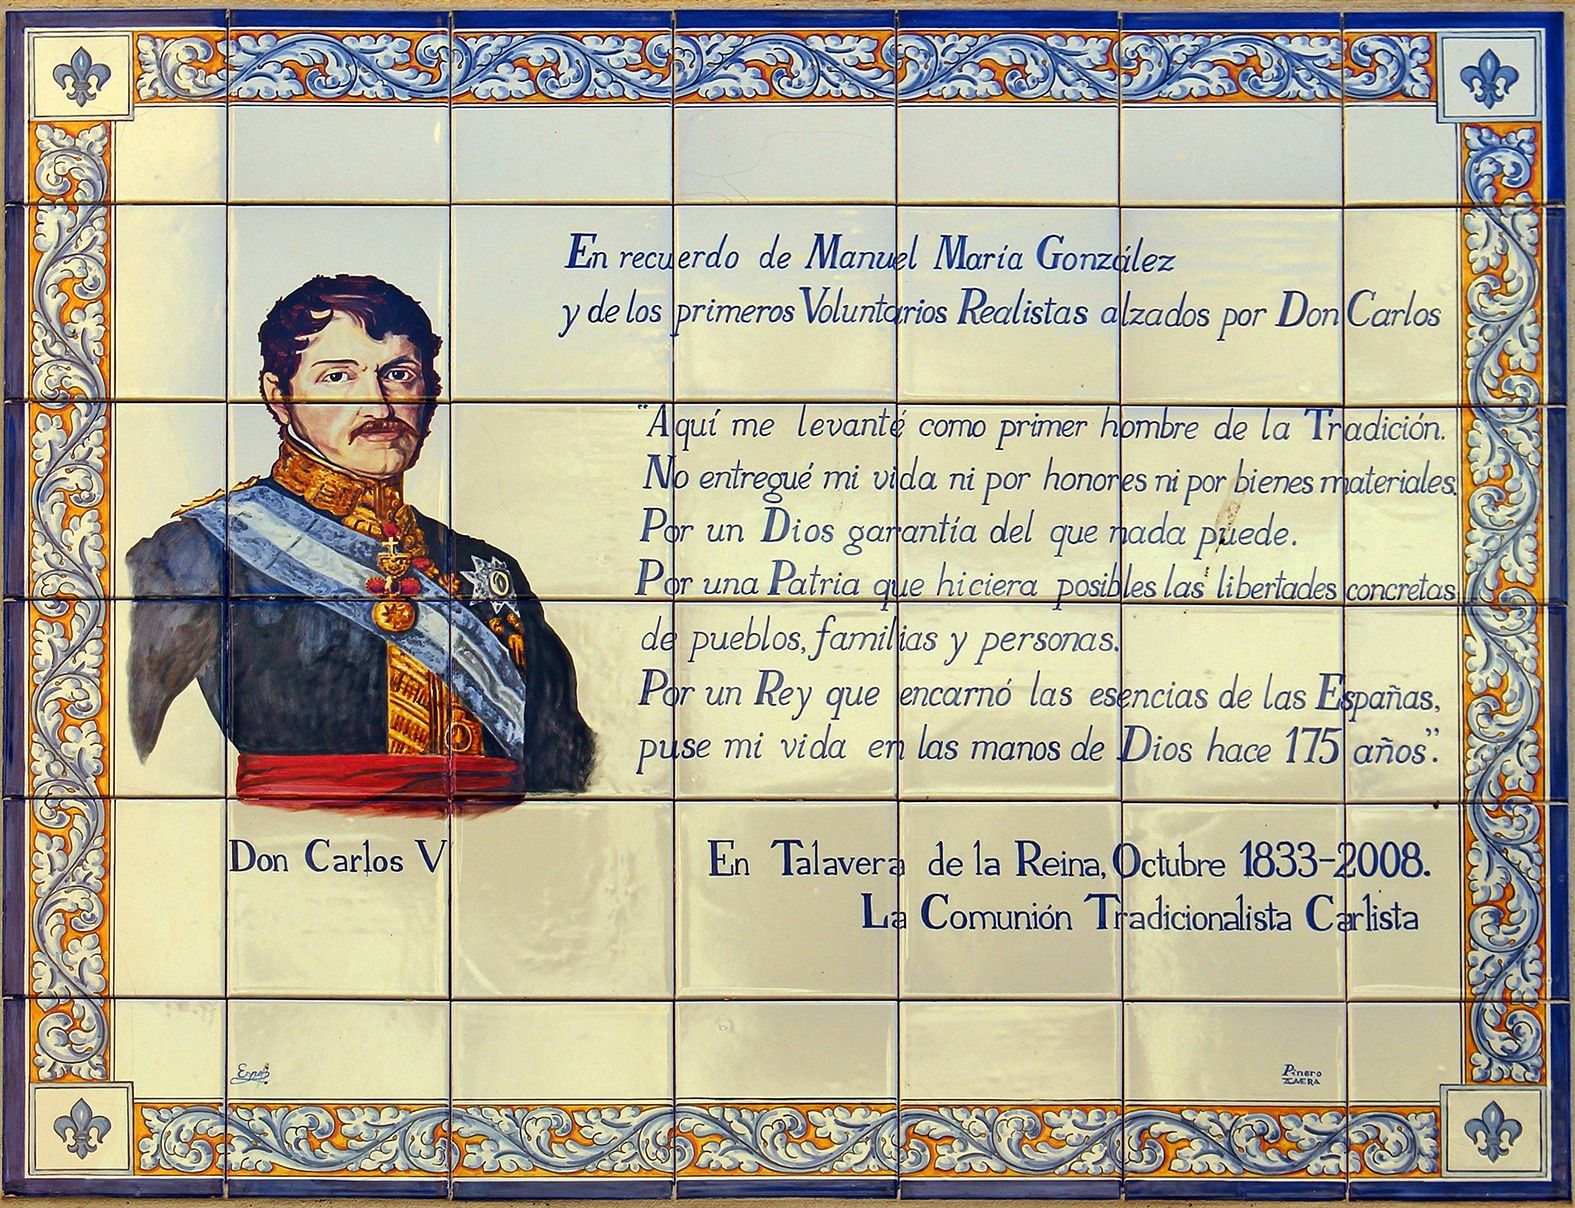 En recuerdo de Manuel María González
y de los primeros Voluntarios Realistas alzados por Don Carlos
"Aquí me levanté como primer hombre de la Tradición.
No entregué mi vida ni por honores ni por bienes materiales.
Por un Dios garantía del que nada puede.
Por una Patria que hiciera posibles las libertades concretas
de pueblos, familias y personas.
Por un Rey que encarnó las esencias de las Españas,
puse mi vida en las manos de Dios hace 175 años".
Don Carlos V
En Talavera de la Reina, Octubre 1833-2008.
La Comunión Tradicionalista Carlista